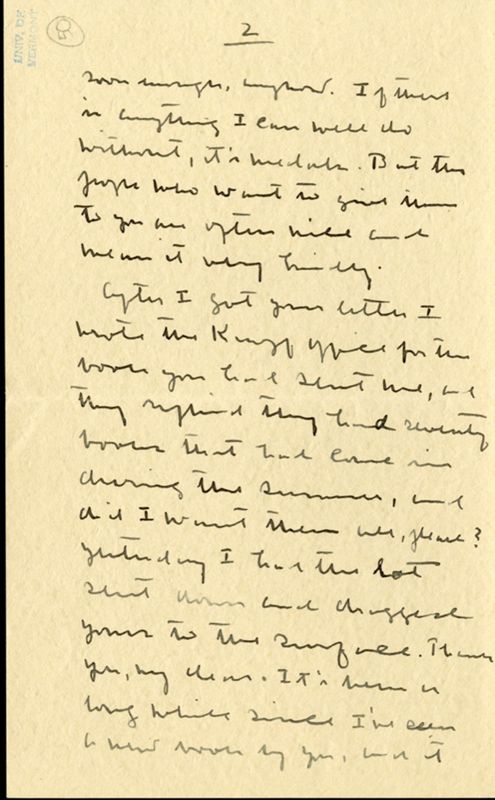 UNIV. OF
VERMONT
2
soon enough, anyhow. If there
is anything I can well do
without, it's medals. But the
people who want to give them
to you are often nice and
mean it very kindly.
After I got your letter I
wrote the Knopf office for the
book you had sent me, and
they replied they had seventy
books that had come in
during the summer, and
did I want them all, please?
Yesterday I had the lot
sent down and dragged
yours to the surface. Thank
you, my dear. It's been a
long while since I've seen
a new book by you, and it